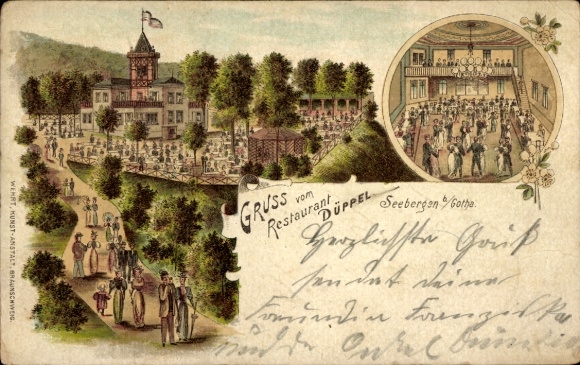 WEHRT, KUNST-ANSTALT, BRAUNSCHWEIG.
GRUSS vom
Restaurant DÜPPEL
Seebergen b/Gotha.
Herzlichste Gruß
sendet deine
Freundin Franziska
und der Onkel